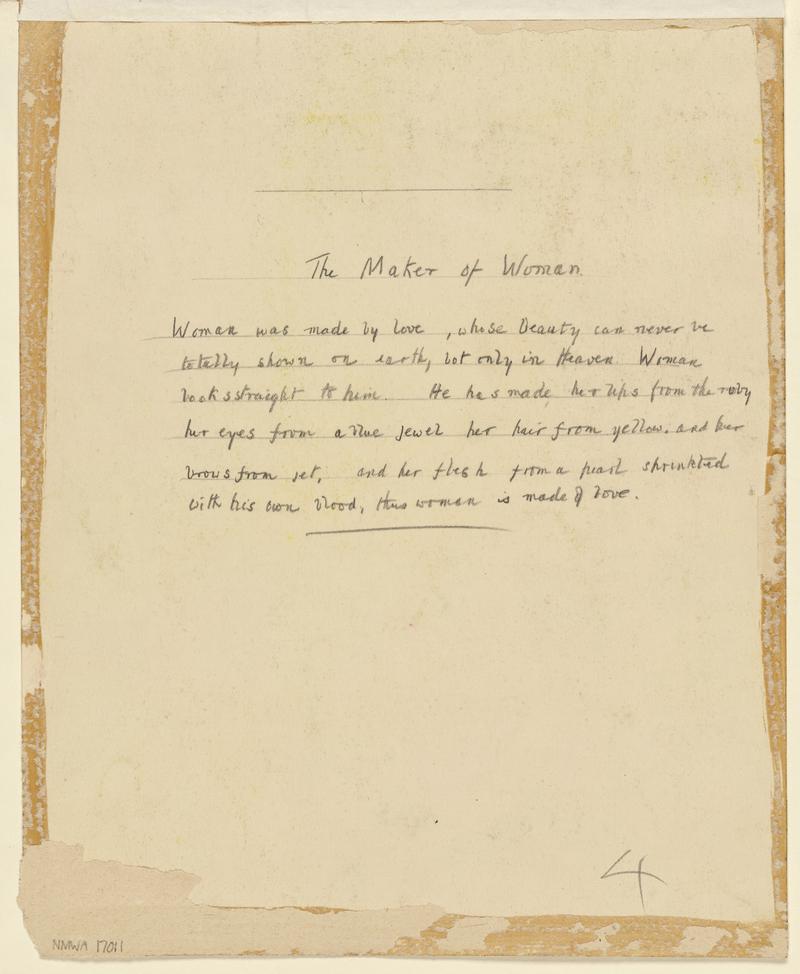 The Maker of Woman
Woman was made by love, whose beauty can never be
totally shown on earth, but only in Heaven. Woman
looks straight to him. He has made her lips from the ruby
her eyes from a blue jewel her hair from yellow. and her
brows from jet, and her flesh from a pearl shrinkled
with his own blood, thus woman is made of love.
4
NMWA 17011